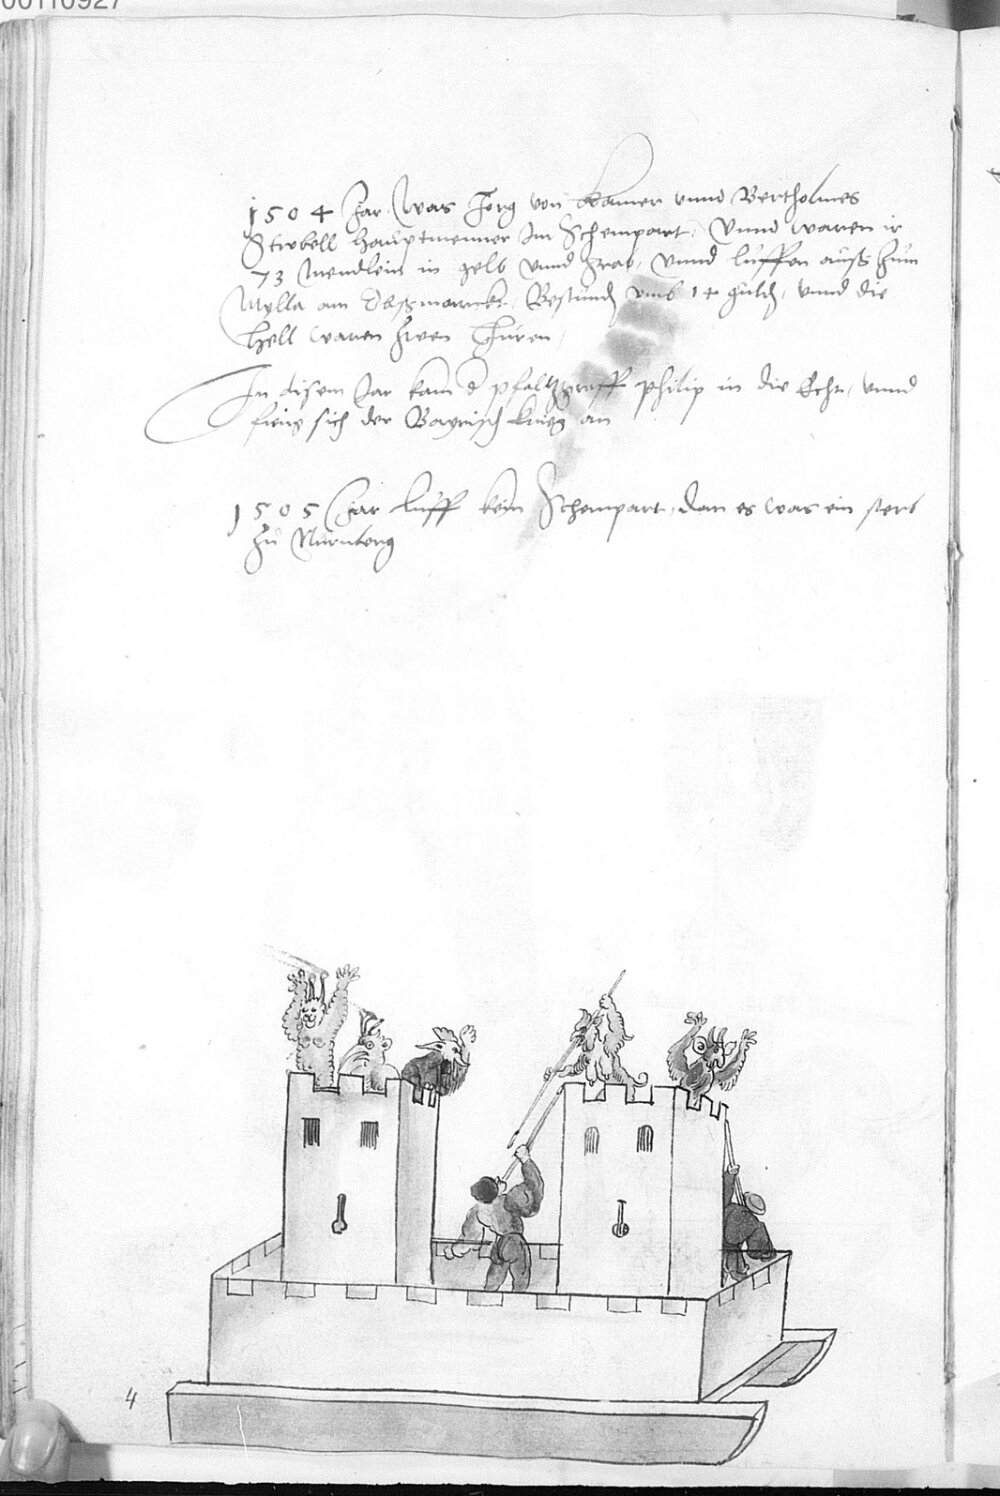 00110927
1504 Jar Was Jorg von Kamer vnnd Bertholmes
Strobell Hauptmenner Im Schempart, Vnnd waren ir
73 mendlein in gelb vnnd grab, vnnd luffen auß zum
Mylla am Obßmarckt, Bestunds vmb 14 guld, vnnd die
hell waren zwen Thuren,
In disem Jar kam d pfaltzgraff philip in die Echt, vnnd
fieng sich der Bayrisch krieg an
1505 Jar luff kein Schempart, dan es was ein sterb
zu Nurnberg
4